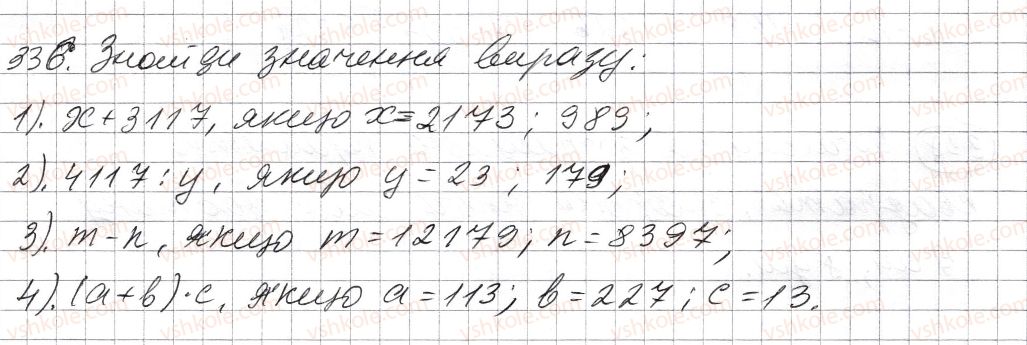 336. Знайди значення виразу:
1). x+3117, якщо x=2173; 989;
2). 4117:y, якщо y=23; 179;
3). m-n, якщо m=12179; n=8397;
4). (a+b)·c, якщо a=113; b=227; c=13.